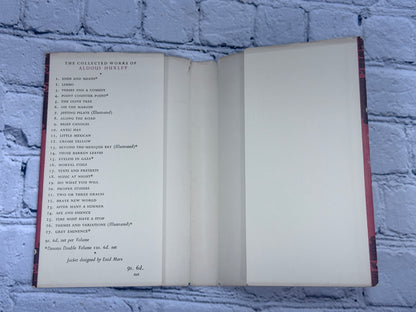 THE COLLECTED WORKS OF
ALDOUS HUXLEY
1. ENDS AND MEANS*
2. LIMBO
3. VERSES AND A COMEDY
4. POINT COUNTER POINT*
5. THE OLIVE TREE
6. ON THE MARGIN
7. JESTING PILATE (Illustrated)
8. ALONG THE ROAD
9. BRIEF CANDLES
10. ANTIC HAY
11. LITTLE MEXICAN
12. CROME YELLOW
13. BEYOND THE MEXIQUE BAY (Illustrated)*
14. THOSE BARREN LEAVES
15. EYELESS IN GAZA*
16. MORTAL COILS
17. TEXTS AND PRETEXTS
18. MUSIC AT NIGHT*
19. DO WHAT YOU WILL
20. PROPER STUDIES
21. TWO OR THREE GRACES
22. BRAVE NEW WORLD
23. AFTER MANY A SUMMER
24. APE AND ESSENCE
25. TIME MUST HAVE A STOP
26. THEMES AND VARIATIONS (Illustrated)*
27. GREY EMINENCE*
9s. 6d. net per Volume
*Denotes Double Volume 12s. 6d. net
Jacket designed by Enid Marx
9s. 6d.
net